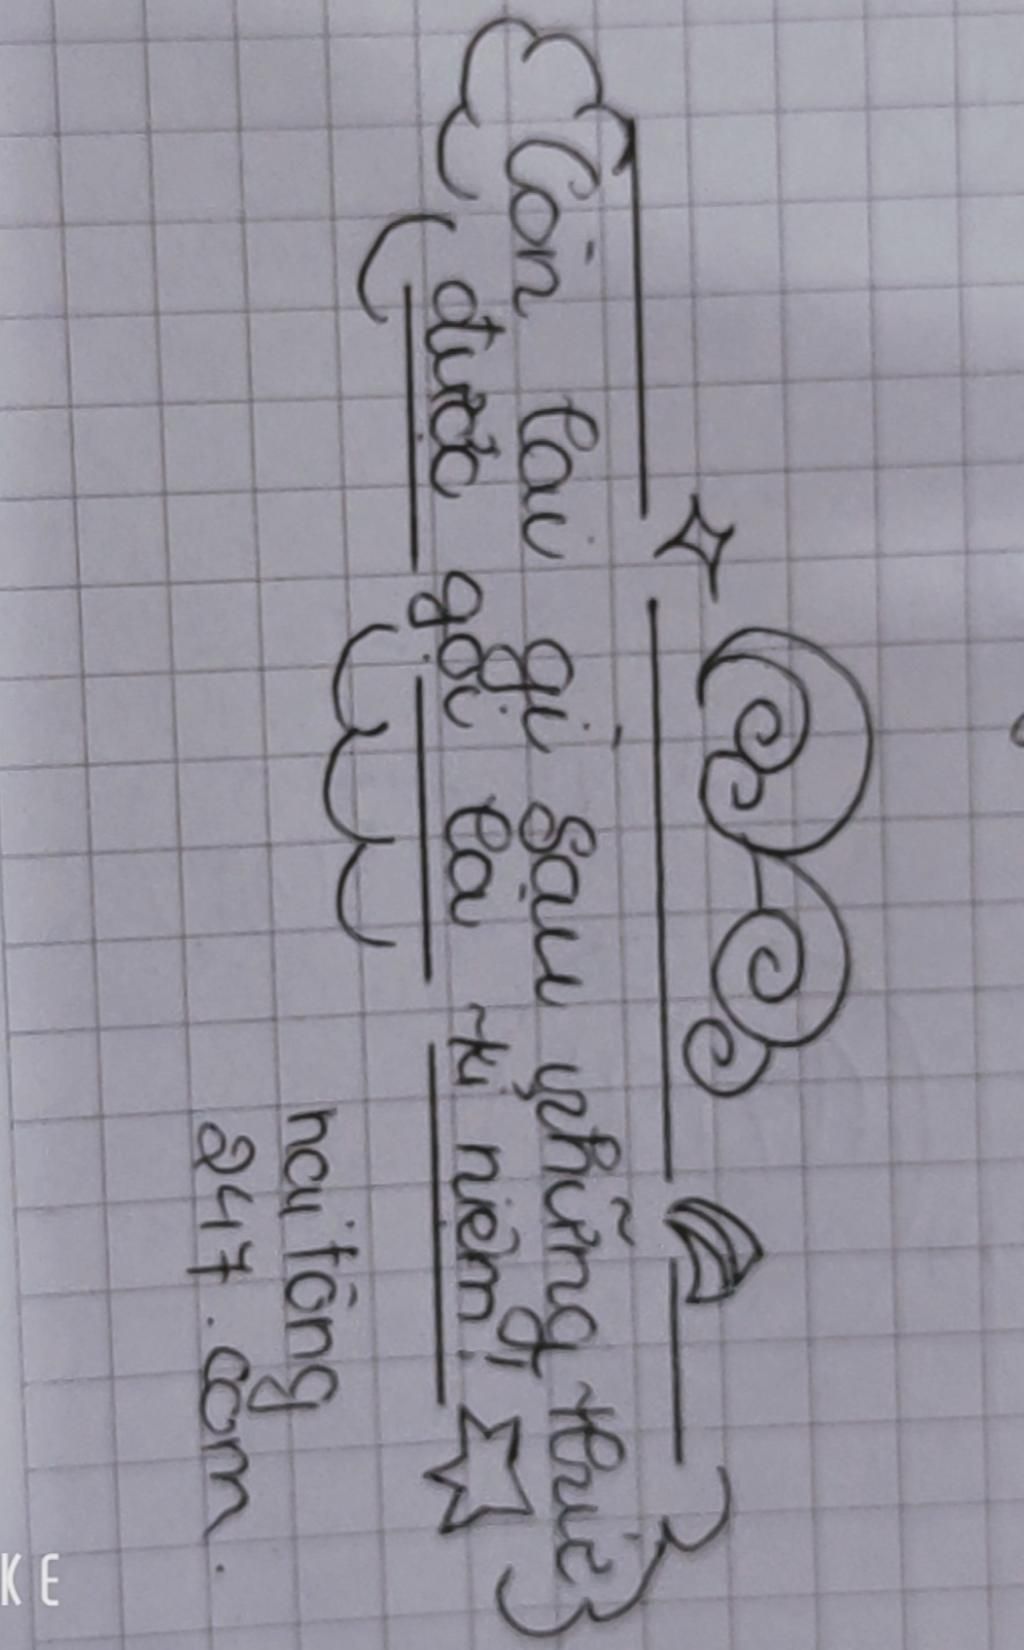 Còn lại gì sau những thứ
được gọi là kỉ niệm!
hai tông
247. com.
KE